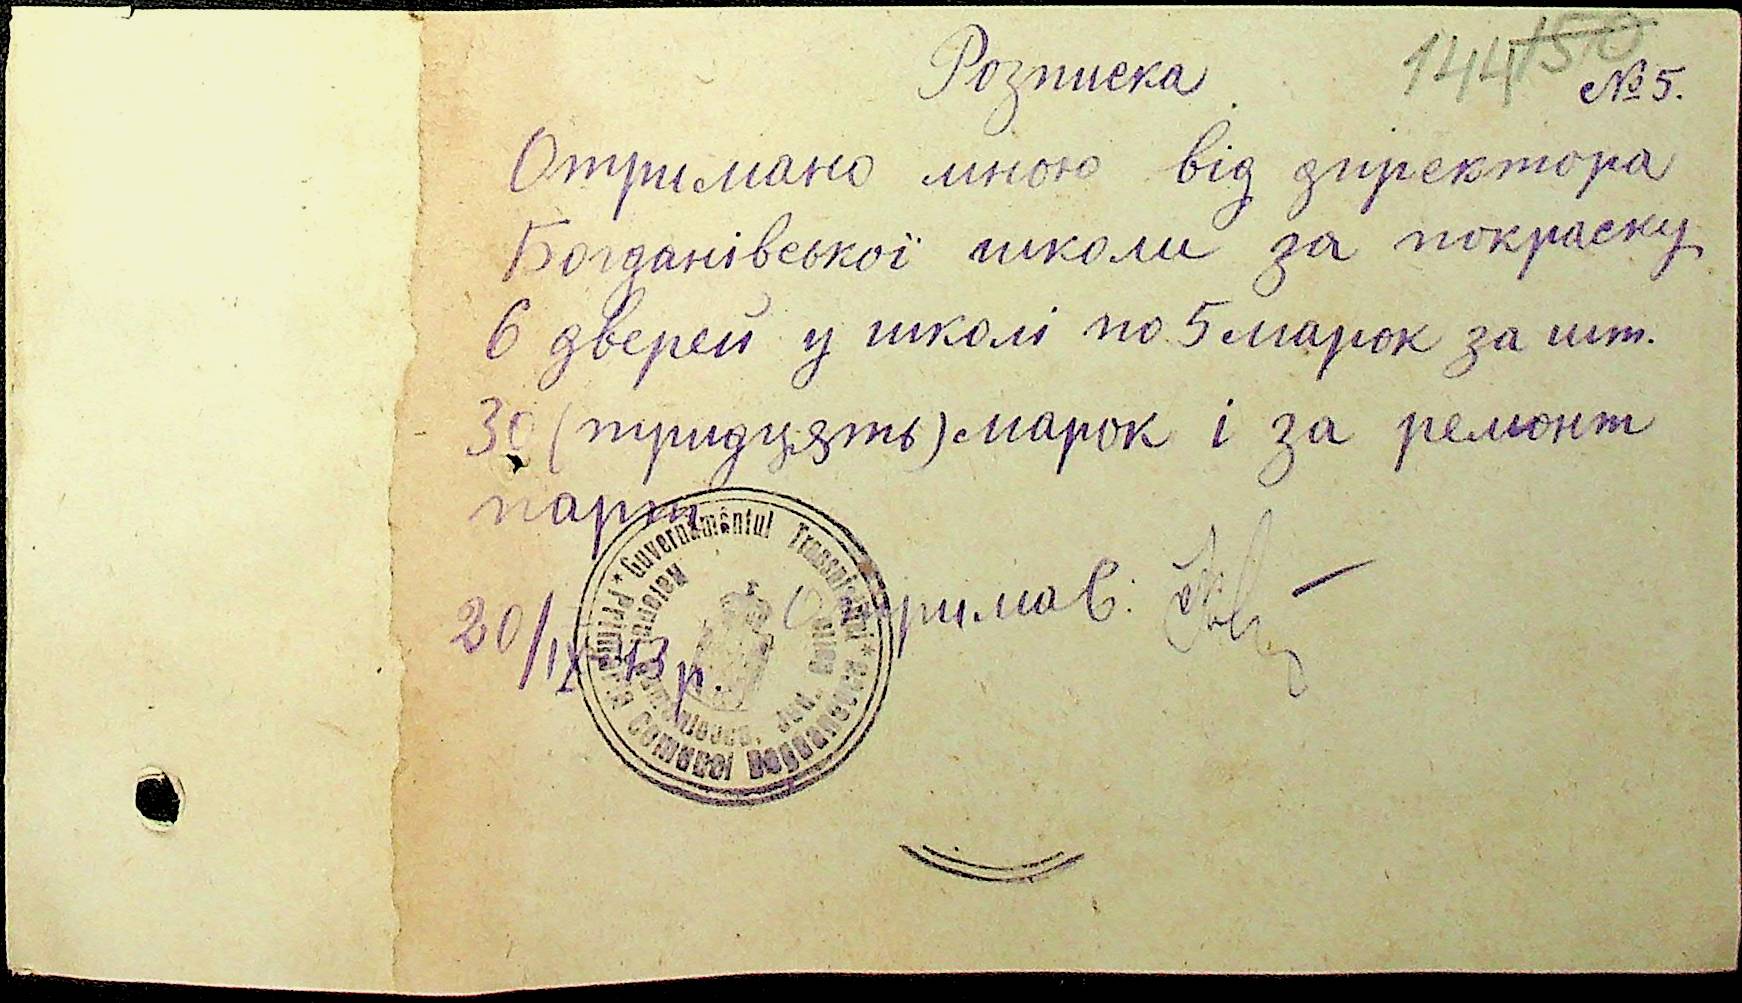 144 150
Розписка
№ 5.
Отримано мною від директора
Богданівської школи за покраску
6 дверей у школі по 5 марок за шт.
30 (тридцять) марок і за ремонт
парт
Отримав:
20/IX 43 р.
* Guvernământul Transnistriei *
Primăria Comunei
Raionul